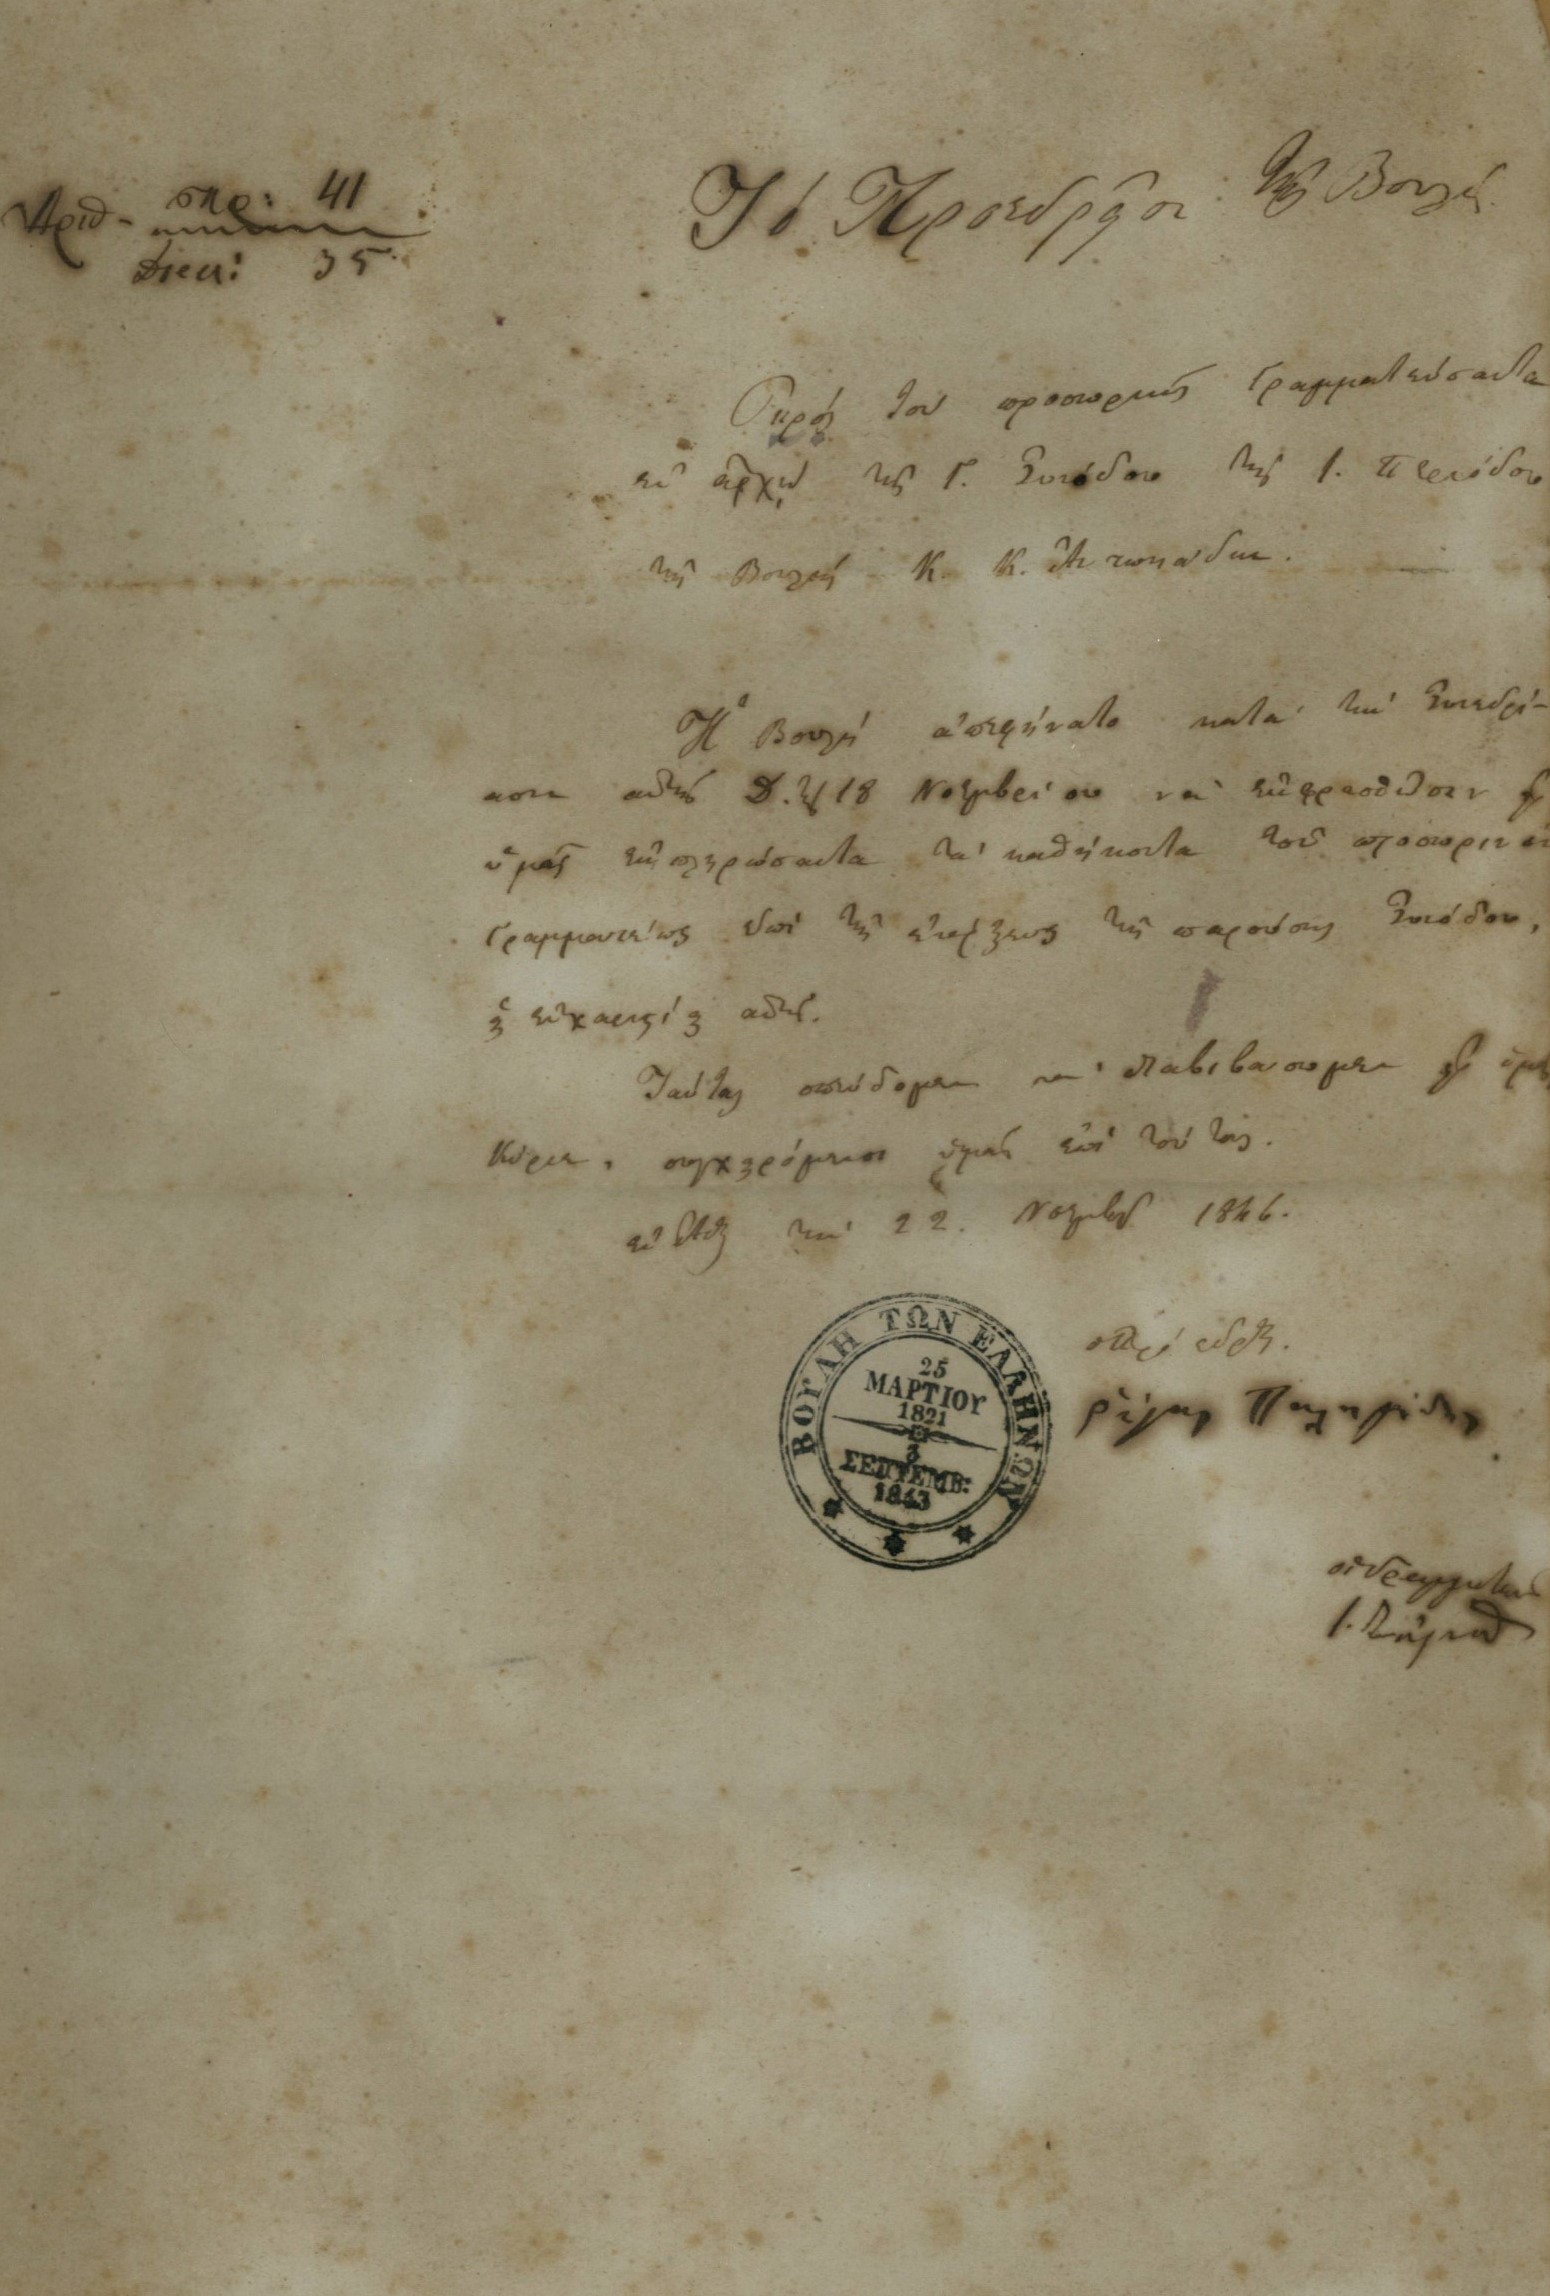 Ἀριθ- πρ: 41
Διεκ: 35
Τὸ Προεδρεῖον τῆς Βουλῆς
Πρὸς τὸν προσωρινῶς Γραμματεύσαντα
ἐν ἀρχῇ τῆς Γ. Συνόδου τῆς Ι. Περιόδου
τῆς Βουλῆς Κ. Κ. Ἀντωνιάδην.
Ἡ Βουλὴ ἀπεφήνατο κατὰ τὴν Συνεδρί-
ασιν αὐτῆς Δ. τῆς 18 Νοεμβρίου νὰ ἐκφρασθῶσιν
ὑμᾶς ἐκπληρώσαντα τὰ καθήκοντα τοῦ προσωρινοῦ
Γραμματέως ἐπὶ τῆς ἐνάρξεως τῆς παρούσης Συνόδου,
ἡ εὐχαρι αὐτῆς.
Ταύτας σπεύδομεν νὰ διαβιβάσωμεν ὑμᾶς
Κύριε, συγχαιρόμενοι ὑμᾶς ἐπὶ τούτοις.
ἐν Ἀθ τὴν 22. Νοεμβ 1846.
ΒΟΥΛΗ ΤΩΝ ΕΛΛΗΝΩΝ
25
ΜΑΡΤΙΟΥ
1821
3
ΣΕΠΤΕΜΒ:
1843
ὁ Πρόεδρος.
Ῥήγας Παλαμήδης
οἱ Γραμματεῖς